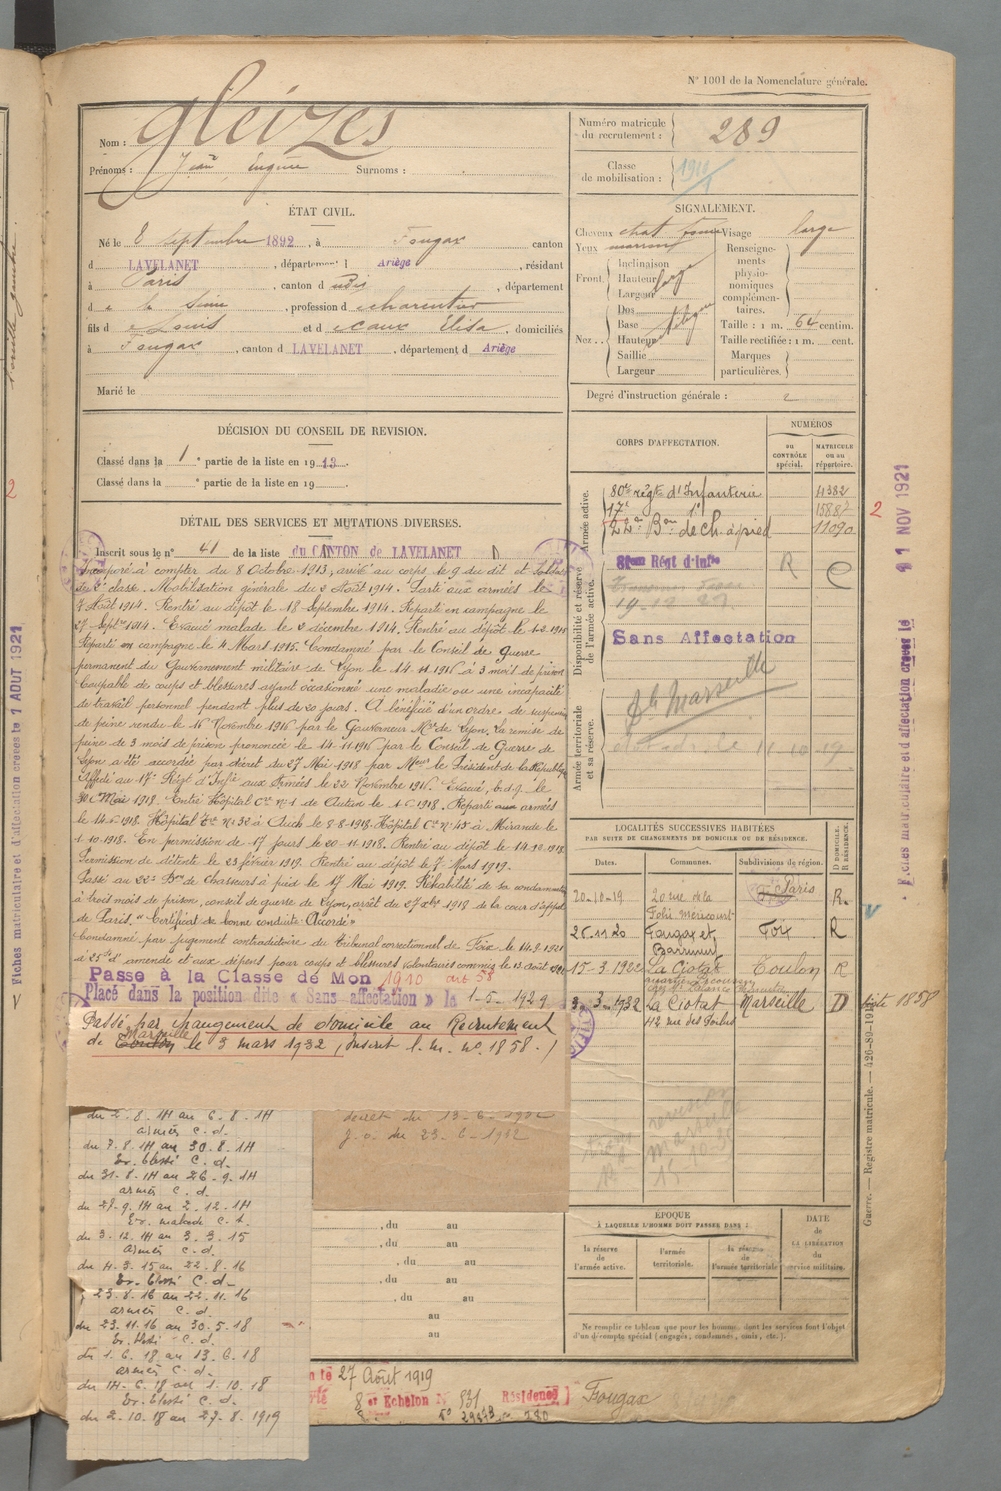 N° 1001 de la Nomenclature générale.
Nom : Gleizes
Prénoms : Jean Eugène Surnoms :
Numéro matricule du recrutement : 289
Classe de mobilisation :
ÉTAT CIVIL.
Né le 8 Septembre 1892, à Fougax canton
d LAVELANET, département d Ariège, résidant
à Paris, canton d udis, département
d e la Seine, profession d e charentier
fils d e Louis et d e Caux Elisa, domiciliés
à Fougax, canton d LAVELANET, département d Ariège
Marié le
SIGNALEMENT.
Cheveux chat Visage large
Yeux marron
Front. Inclinaison
Hauteur large
Largeur
Nez .. Dos
Base
Hauteur
Saillie
Largeur
Renseignements physionomiques complémentaires.
Taille : 1 m. 64 centim.
Taille rectifiée : 1 m. cent.
Marques particulières.
Degré d'instruction générale : 2
DÉCISION DU CONSEIL DE REVISION.
Classé dans la 1 e partie de la liste en 1913.
Classé dans la e partie de la liste en 19
CORPS D'AFFECTATION.
NUMÉROS
au CONTRÔLE spécial.
MATRICULE ou au répertoire.
Armée active.
80e régt d'Infanterie 4382
17e 1e 15887
22e Bon de ch. à pied 11090
Disponibilité et réserve de l'armée active.
81eme Régt d'Infie R
Sans Affectation
Armée territoriale et sa réserve.
Marseille
DÉTAIL DES SERVICES ET MUTATIONS DIVERSES.
Inscrit sous le n° 41 de la liste du CANTON de LAVELANET
Incorporé à compter du 8 Octobre 1913, arrivé au corps le 9 du dit et soldat
de 2e classe. Mobilisation générale du 2 Août 1914. Parti aux armées le
7 Août 1914. Rentré au dépôt le 18 Septembre 1914. Reparti en campagne le
27 Septbre 1914. Evacué malade le 2 décembre 1914. Rentré au dépôt le 1-2-1915
Reparti en campagne le 4 Mars 1915. Condamné par le Conseil de Guerre
permanent du Gouvernement militaire de Lyon le 14.11.1916 à 3 mois de prison
Coupable de coups et blessures ayant occasionné une maladie ou une incapacité
de travail personnel pendant plus de 20 jours. A bénéficié d'un ordre de suspension
de peine rendu le 16 Novembre 1916 par le Gouverneur Mre de Lyon. La remise de
peine de 3 mois de prison prononcée le 14-11-1916 par le Conseil de Guerre de
Lyon a été accordée par décret du 27 Mai 1918 par Mr le Président de la République
Affecté au 17e Régt d'Infie aux Armées le 22 Novembre 1916. Evacué, b.d.g. le
30 Mai 1918. Entré Hôpital Cre n° 1 de Autun le 1-6-1918. Reparti aux armées
le 14-6-1918. Hôpital n° 32 à Auch le 8-8-1918. Hôpital Cre n° 43 à Mirande le
1-10-1918. En permission de 17 jours le 20-11-1918. Rentré au dépôt le 14-12-1918
Permission de détente le 23 février 1919. Rentré au dépôt le 7 Mars 1919.
Passé au 22e Bon de Chasseurs à pied le 17 Mai 1919. Réhabilité de sa condamnation
à trois mois de prison, conseil de guerre de Lyon, arrêt du 27 xbre 1918 de la cour d'appel
de Paris. "Certificat de bonne conduite Accordé"
Condamné par jugement contradictoire du Tribunal correctionnel de Foix le 14.9.1921
à 25f d'amende et aux dépens pour coups et blessures volontaires commis le 13 août 1921
Passé à la Classe de Mon 1910 art 58
Placé dans la position dite « Sans affectation » le 1-5-1929
Passé par changement de domicile au Recrutement
de Toulon Marseille le 3 mars 1932 (Inscrit l. m. n° 1858.)
LOCALITÉS SUCCESSIVES HABITÉES
PAR SUITE DE CHANGEMENTS DE DOMICILE OU DE RÉSIDENCE.
Dates. Communes. Subdivisions de région. D DOMICILE. R RÉSIDENCE.
20-10-19 20 rue de la Folie Méricourt Paris R.
26.11.20 Fougax et Barrineuf Foix R
15-3-1922 La Ciotat Toulon R
3-3-1932 La Ciotat Marseille D
112 rue des Poilus
liste 1858
du 2-8-14 au 6-8-14
armées C. d.
du 7.8.14 au 30.8.14
Ev. blessé C. d.
du 31-8-14 au 26-9-14
armées C. d.
du 27-9-14 au 2-12-14
Ev. malade C. d.
du 3-12-14 au 3-3-15
armées C. d.
du 4-3-15 au 22-8-16
Ev. blessé C. d.
23-8-16 au 22-11-16
armées C. d.
du 23.11.16 au 30.5.18
Ev. blessé C. d.
du 1.6.18 au 13.6.18
armées C. d.
du 14-6-18 au 1-10-18
Ev. blessé C. d.
du 2-10-18 au 27-8-1919
décret du 13-6-1912
J.O. du 23-6-1912
, du au
, du au
, du au
, du au
, du au
au
au
ÉPOQUE
À LAQUELLE L'HOMME DOIT PASSER DANS :
la réserve de l'armée active.
l'armée territoriale.
la réserve de l'armée territoriale
DATE de LA LIBÉRATION du service militaire.
Ne remplir ce tableau que pour les hommes dont les services font l'objet
d'un décompte spécial (engagés, condamnés, omis, etc.).
27 Août 1919
8 et Echelon N° 831 Résidence Fougax
Guerre. — Registre matricule. — 426-89-1912
Fiches matriculaire et d'affectation créées le 1 AOUT 1921
Fiches matriculaire et d'affectation créées le 11 NOV 1921
2
2